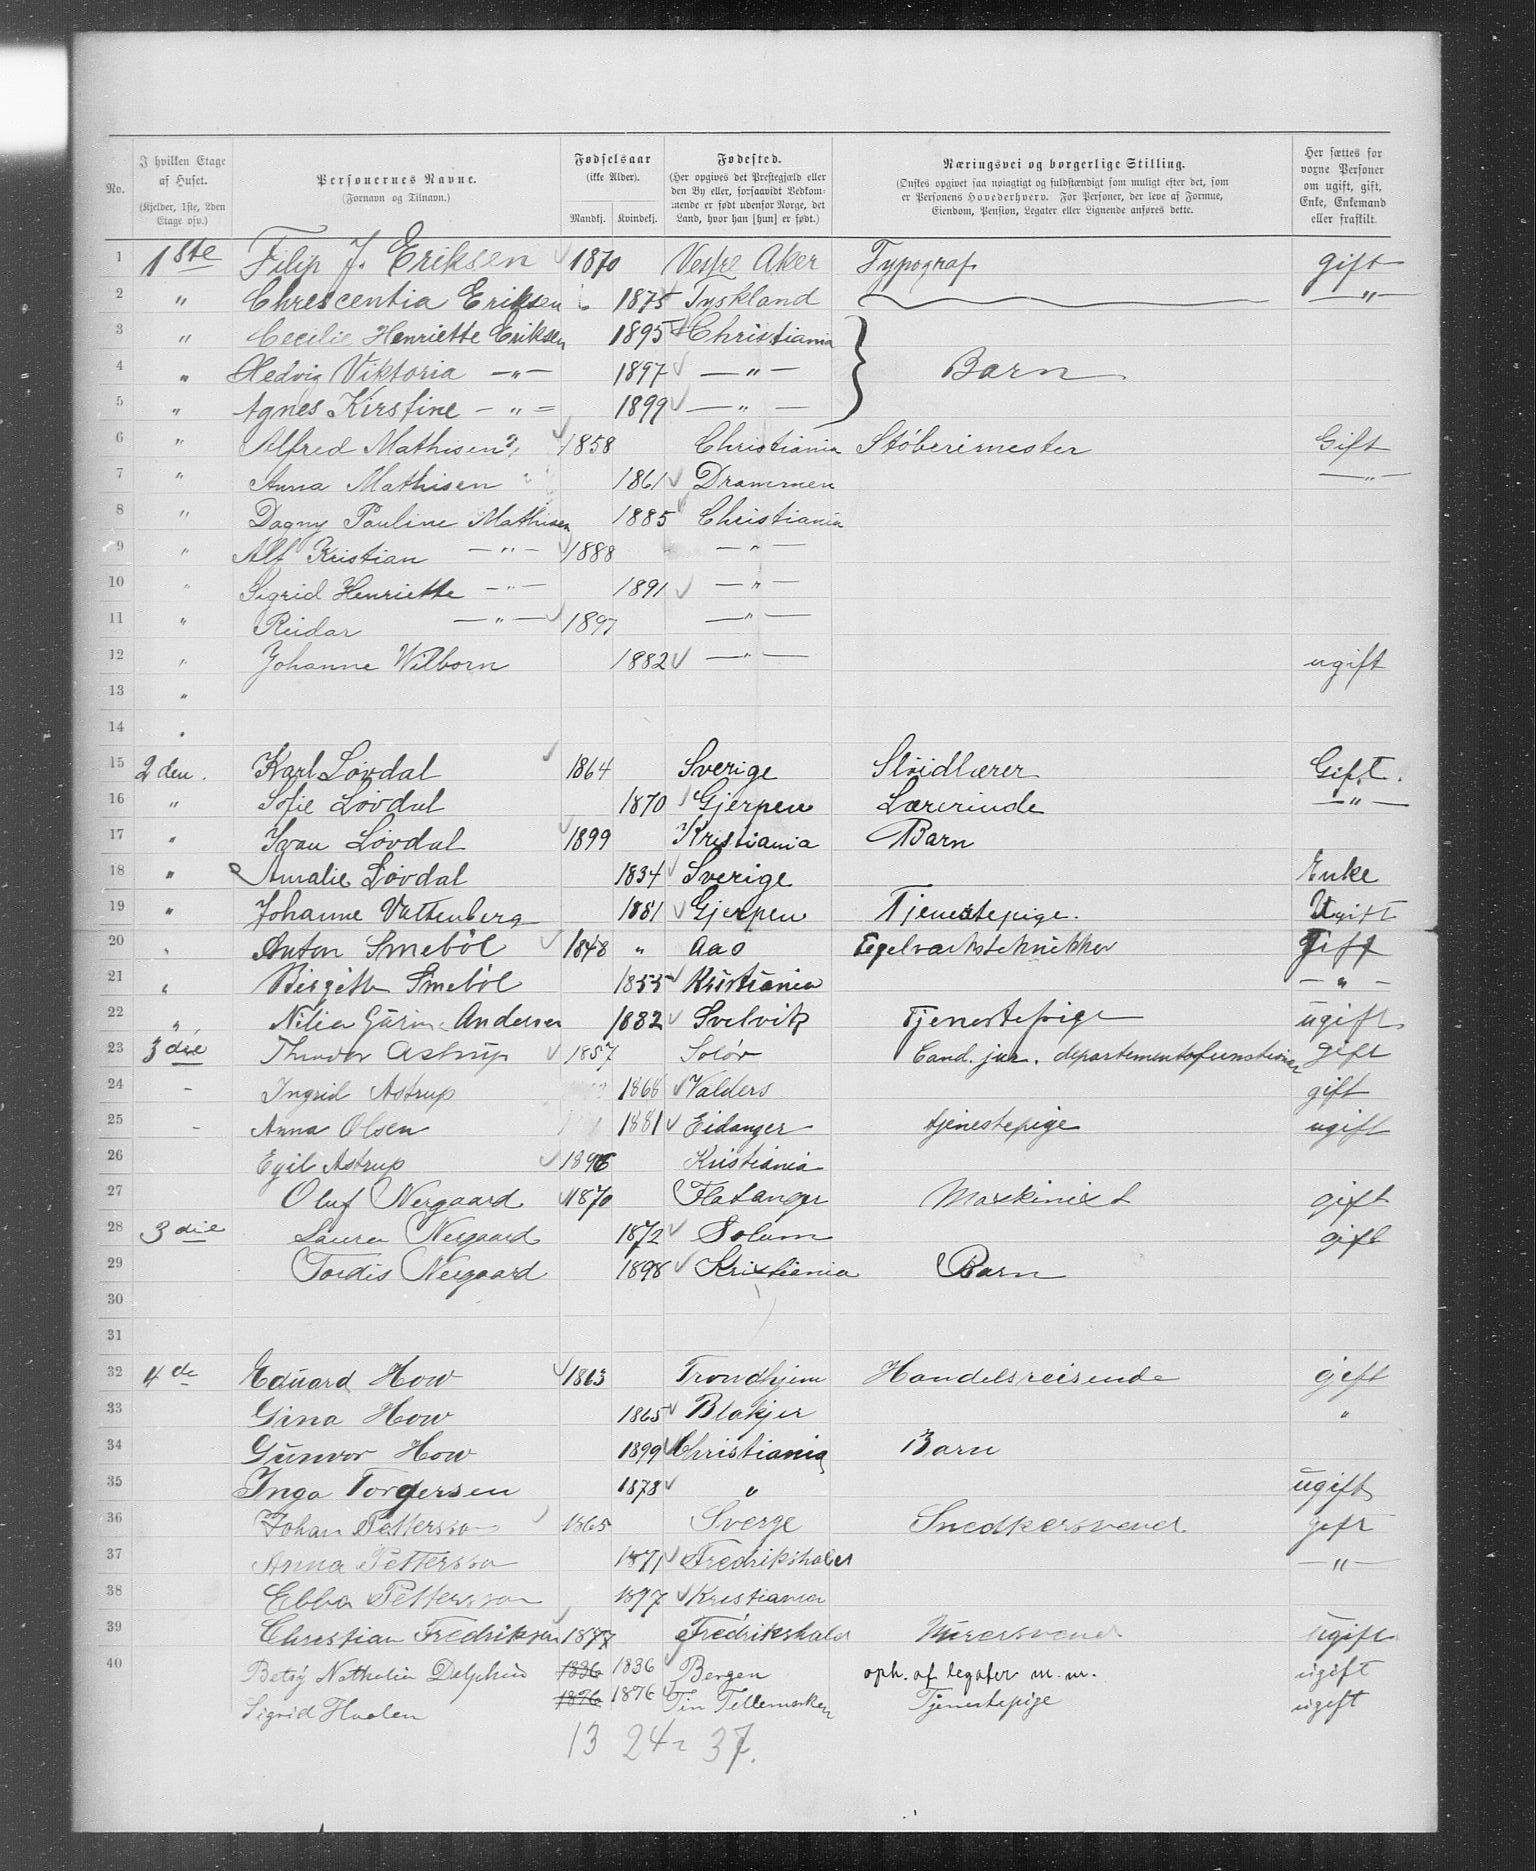 No. I hvilken Etage af Huset. (Kjelder, 1ste, 2den Etage osv.) Personernes Navne. (Fornavn og Tilnavn.) Fødselsaar (ikke Alder). Mandkj. Kvindekj. Fødested. (Her opgives det Præstegjæld eller den By eller, forsaavidt Vedkommende er født udenfor Norge, det Land, hvor han [hun] er født.) Næringsvei og borgerlige Stilling. (Ønskes opgivet saa nøiagtigt og fuldstændigt som muligt efter det, som er Personens Hovederhverv. For Personer, der leve af Formue, Eiendom, Pension, Legater eller Lignende anføres dette. Her sættes for voxne Personer om ugift, gift, Enke, Enkemand eller fraskilt.
1 1ste Filip J. Eriksen 1870 Vestre Aker Typograf gift
2 " Chrescentia Eriksen 1875 Tyskland —"—
3 " Cecilie Henriette Eriksen 1895 Christiania
4 " Hedvig Viktoria —"— 1897 —"— Barn
5 " Agnes Kirstine —"— 1899 —"—
6 " Alfred Mathisen 1858 Christiania Støberimester Gift
7 " Anna Mathisen 1861 Drammen —"—
8 " Dagny Pauline Mathisen 1885 Christiania
9 " Alf Kristian —"— 1888 —"—
10 " Sigrid Henriette —"— 1891 —"—
11 " Reidar —"— 1897 —"—
12 " Johanne Wilborn 1882 —"— ugift
13 "
14 "
15 2den. Karl Løvdal 1864 Sverige Sløidlærer Gift.
16 " Sofie Løvdal 1870 Gjerpen Lærerinde —"—
17 " Ivan Løvdal 1899 Kristiania Barn
18 " Amalie Løvdal 1834 Sverige Enke
19 " Johanne Vattenberg 1881 Gjerpen Tjenestepige. Ugift
20 " Anton Smebøl 1848 " Aas Teglværksteknikker Gift
21 " Birgitte Smebøl 1855 Kristiania —"—
22 " Andersen 1882 Svelvik Tjenestepige ugift
23 3die Astrup 1857 Solør Cand. jur. gift
24 - Ingrid Astrup 1868 Valders gift
25 - Anna Olsen 1881 Eidanger tjenestepige ugift
26 Egil Astrup Kristiania
27 Oluf Nergaard 1870 Flatanger Maskinist gift
28 3die Laura Nergaard 1872 Solum gift
29 Tordis Nergaard 1898 Kristiania Barn
30
31
32 4de Eduard How 1863 Trondhjem Handelsreisende gift
33 Gina How 1865 Blakjer "
34 Gunvor How 1899 Christiania Barn
35 Inga Torgersen 1878 " ugift
36 Johan Pettersson 1865 Sverge Snedkersvend gift
37 Anna Pettersson 1871 Fredrikshald —"—
38 Ebba Pettersson 1897 Kristiania
39 Christian Fredriksen 1877 Fredrikshald Murersvend ugift
40 Betsy Nathalia Delphin 1836 1836 Bergen oph. af legater m.m. ugift
Sigrid Haalen 1876 1876 Tin Tellemarken Tjenestepige ugift
13 24 = 37.